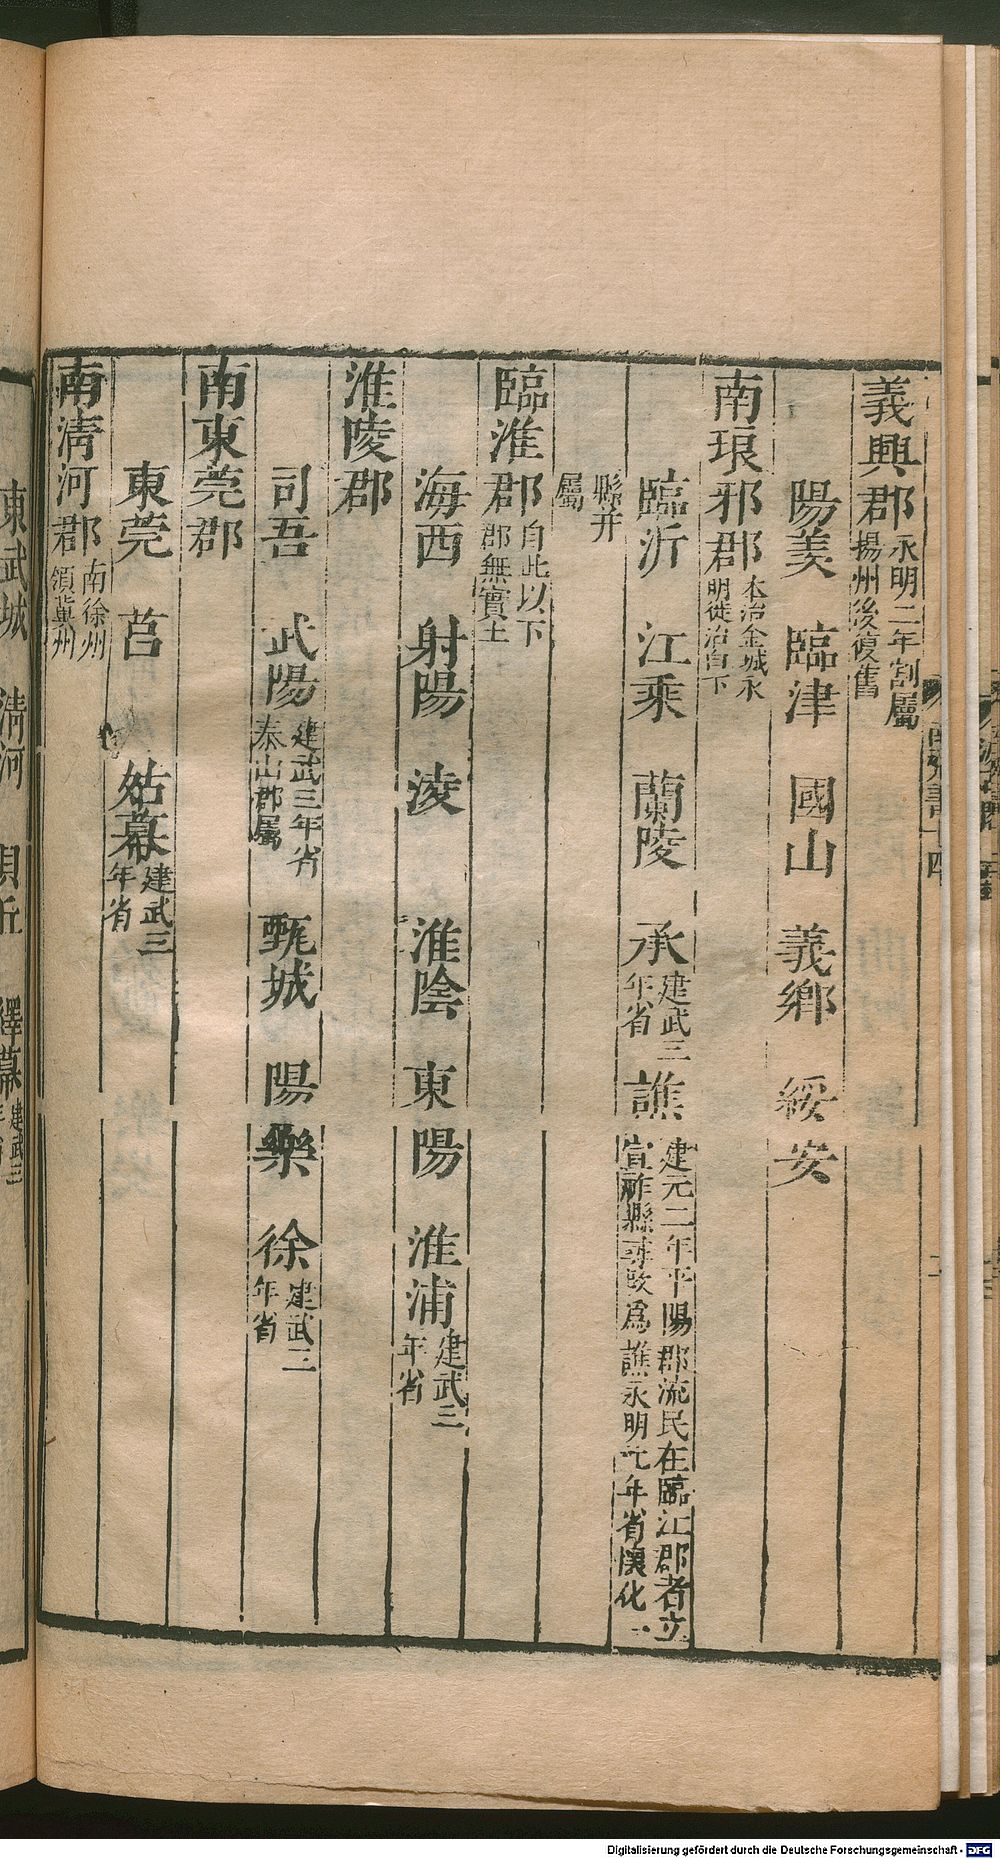 義興郡永明二年割屬揚州後復舊
陽羨 臨津 國山 義鄉 綏安
南琅邪郡本治金城永明徙治白下
臨沂 江乘 蘭陵 承建武三年省 譙建元二年平陽郡流民在臨江郡者立宣祚縣尋改爲譙永明元年省懷化一
縣并屬
臨淮郡自此以下郡無實土
海西 射陽 淩 淮陰 東陽 淮浦建武三年省
淮陵郡
司吾 武陽建武三年省泰山郡屬 甄城 陽樂 徐建武三年省
南東莞郡
東莞 莒 姑幕建武三年省
南清河郡南徐州領冀州
東武城 清河 貝丘 繹幕建武三年省
南齊書十四
Digitalisierung gefördert durch die Deutsche Forschungsgemeinschaft - DFG